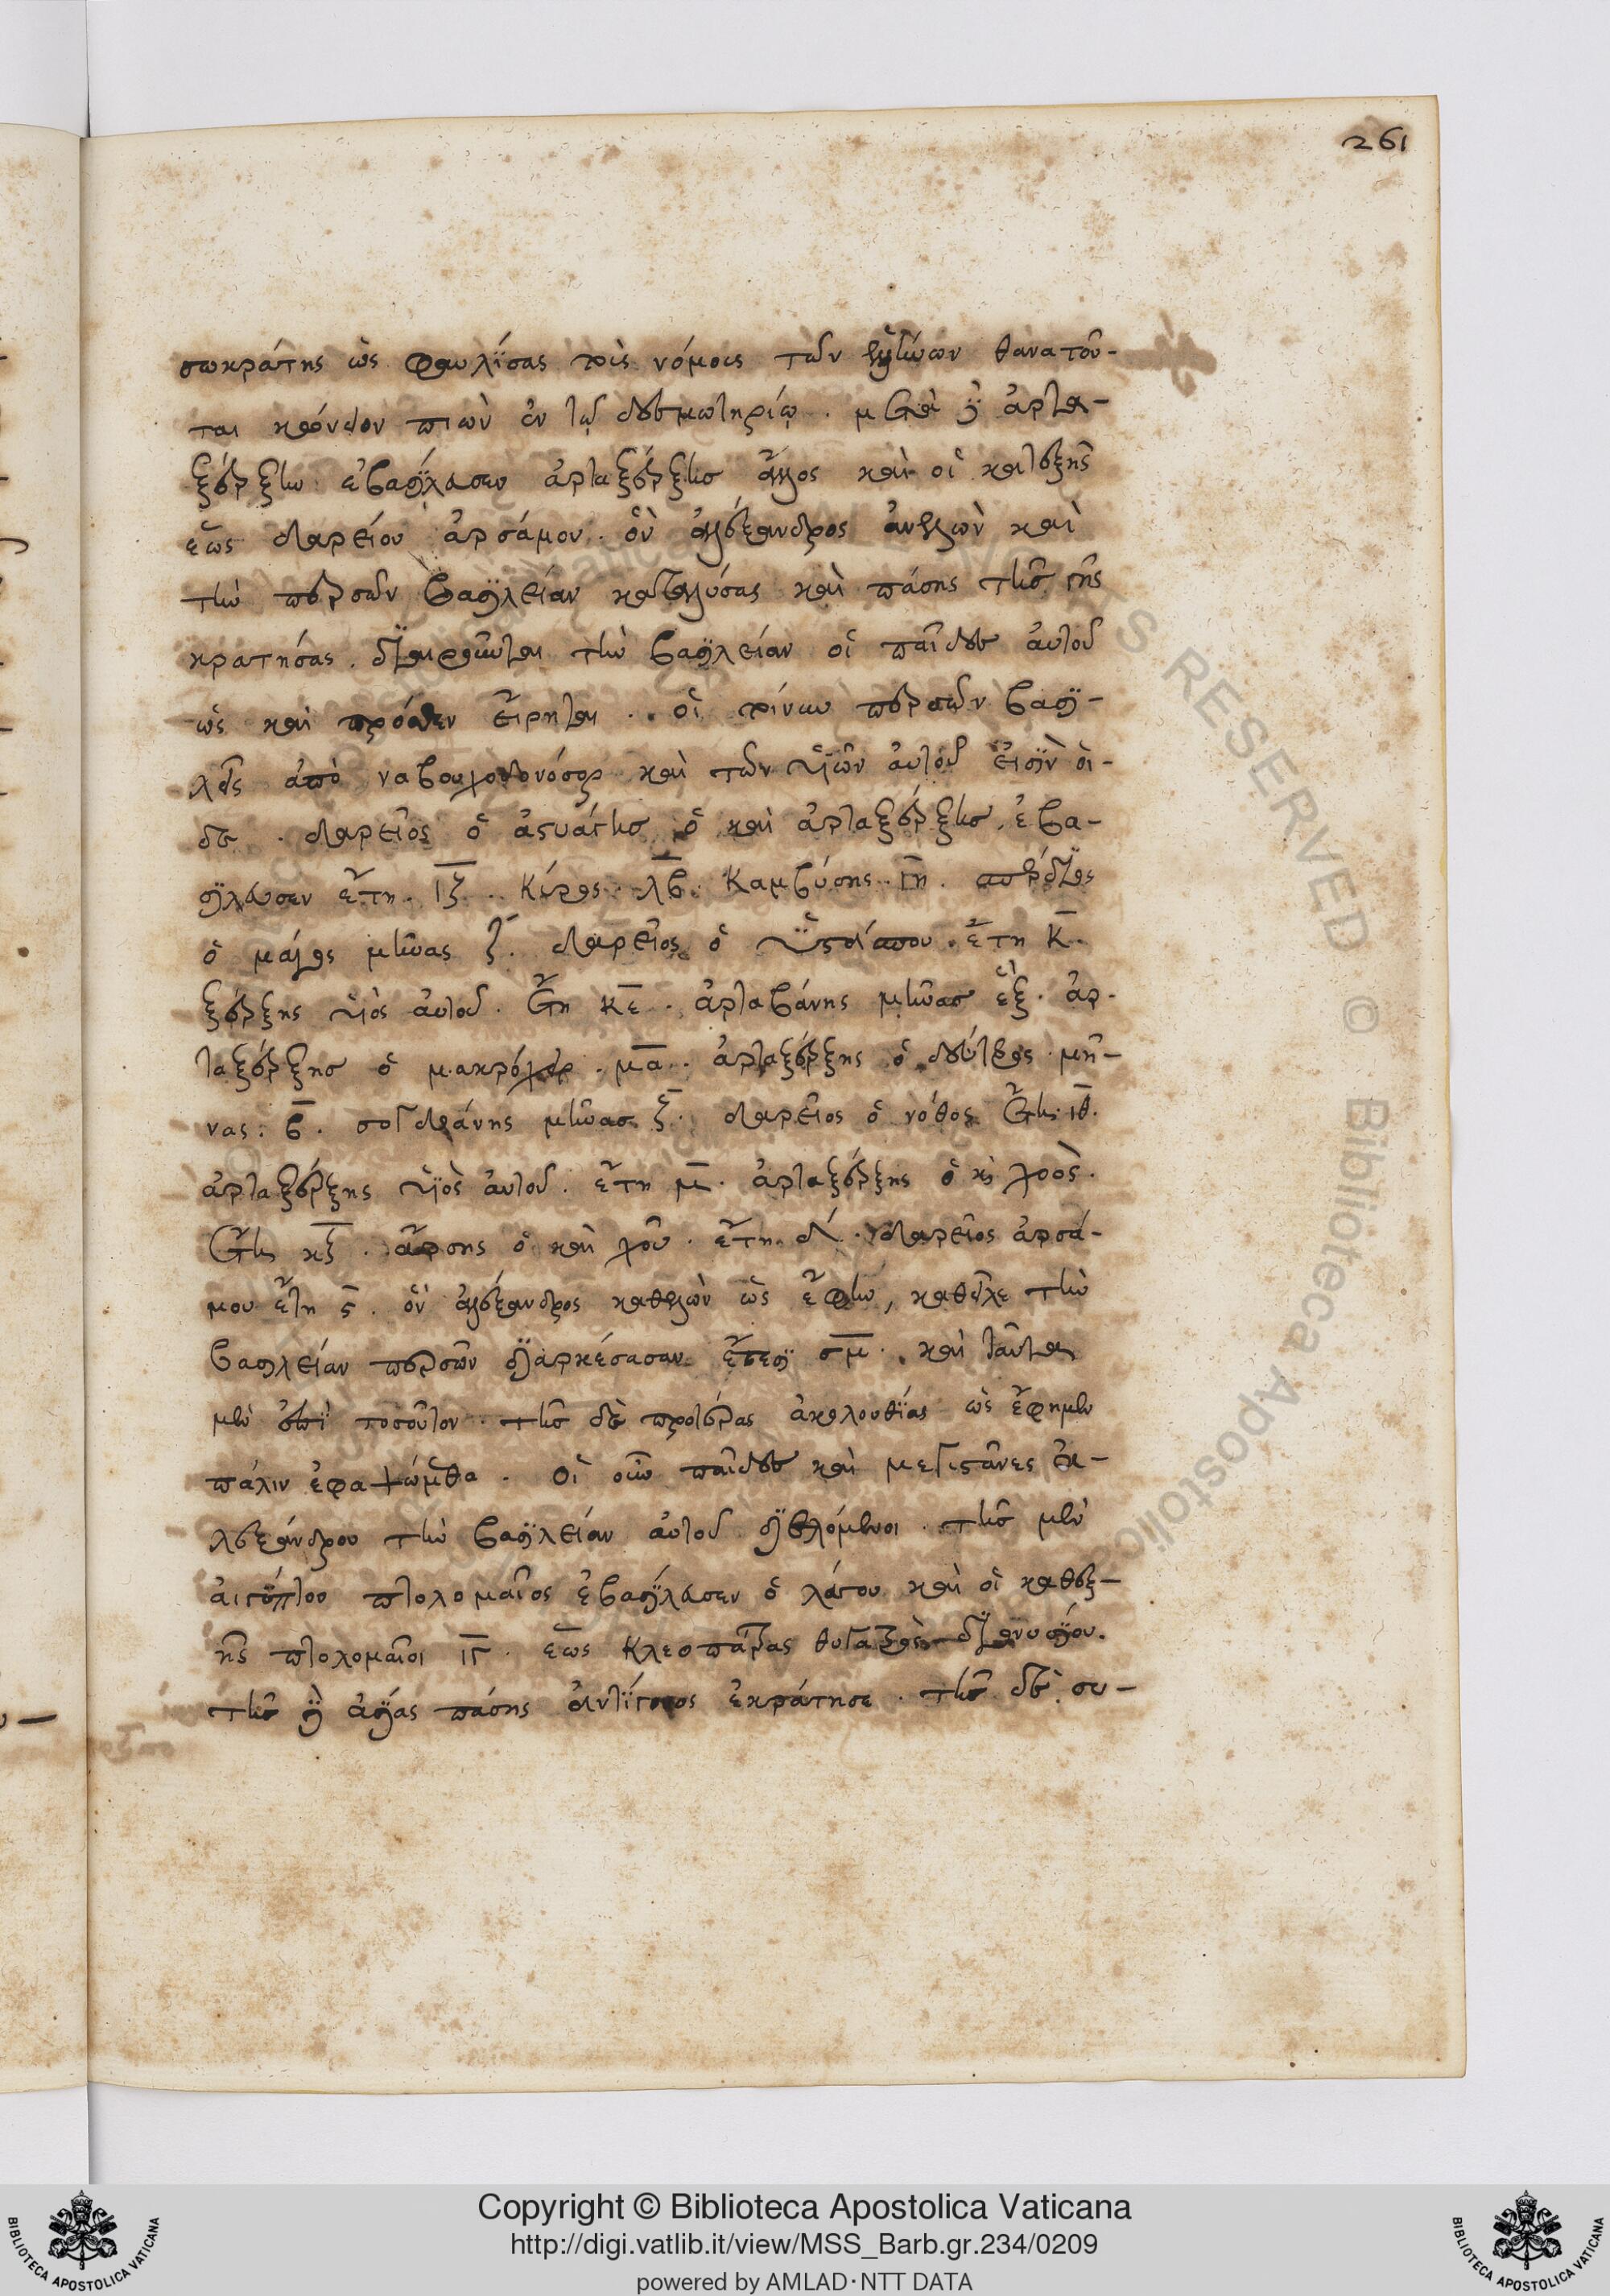 261
σωκράτης ὡς φαυλίσας τοὺς νόμους τῶν ἑλλήνων θανατοῦ-
ται κώνειον πιὼν ἐν τῷ δεσμωτηρίῳ. μετὰ δὲ ἀρτα-
ξέρξην ἐβασίλευσεν ἀρταξέρξης ἄλλος καὶ οἱ καθεξῆς
ἕως δαρείου ἀρσάμου. ὃν ἀλέξανδρος ἀνελὼν καὶ
τὴν περσῶν βασιλείαν καταλύσας καὶ πάσης τῆς γῆς
κρατήσας. διαιροῦνται τὴν βασιλείαν οἱ παῖδες αὐτοῦ
ὡς καὶ πρόσθεν εἴρηται. οἱ τοίνυν περσῶν βασι-
λεῖς ἀπὸ ναβουχοδονόσορ καὶ τῶν υἱῶν αὐτοῦ εἰσὶν οἵ-
δε. δαρεῖος ὁ ἀστυάγης ὁ καὶ ἀρταξέρξης. ἐβα-
σίλευσεν ἔτη ιζ. κύρος λβ. καμβύσης ιη. σπέρδιος
ὁ μάγος μῆνας ζ. δαρεῖος ὁ ὑστάσπου. ἔτη κ.
ξέρξης υἱὸς αὐτοῦ. ἔτη κε. ἀρταβάνης μῆνας ἕξ. ἀρ-
ταξέρξης ὁ μακρόχειρ. μα. ἀρταξέρξης ὁ δεύτερος μῆ-
νας. β. σογδιάνης μῆνας ζ. δαρεῖος ὁ νόθος ἔτη ιθ.
ἀρταξέρξης υἱὸς αὐτοῦ. ἔτη μ. ἀρταξέρξης ὁ κὶ χοός.
ἔτη κζ. ἄρσης ὁ καὶ χοῦ. ἔτη δ. δαρεῖος ἀρσά-
μου ἔτη ς. ὃν ἀλέξανδρος καθελὼν ὡς ἔφην, καθεῖλε τὴν
βασιλείαν περσῶν διαρκέσασαν ἔτεσι σμ. καὶ ταῦτα
μὲν ἐπὶ τοσοῦτον. τῆς δὲ προτέρας ἀκολουθίας ὡς ἔφημεν
πάλιν ἐφαψώμεθα. οἱ οὖν παῖδες καὶ μεγιστᾶνες ἀ-
λεξάνδρου τὴν βασιλείαν αὐτοῦ διελόμενοι. τῆς μὲν
αἰγύπτου πτολομαῖος ἐβασίλευσεν ὁ λάγου καὶ οἱ καθεξ-
ῆς πτολομαῖοι ιγ. ἕως κλεοπάτρας θυγατρὸς διονυσίου.
τῆς δὲ ἀσίας πάσης ἀντίγονος ἐκράτησε. τῆς δὲ συ-
Copyright © Biblioteca Apostolica Vaticana
http://digi.vatlib.it/view/MSS_Barb.gr.234/0209
powered by AMLAD·NTT DATA